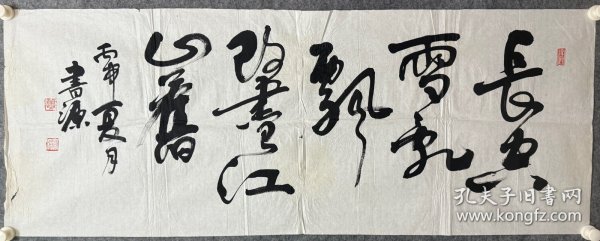 長空
雪亂
飄
改盡江
山舊
丙申夏月
書源
孔夫子旧书网
www.kongfz.com